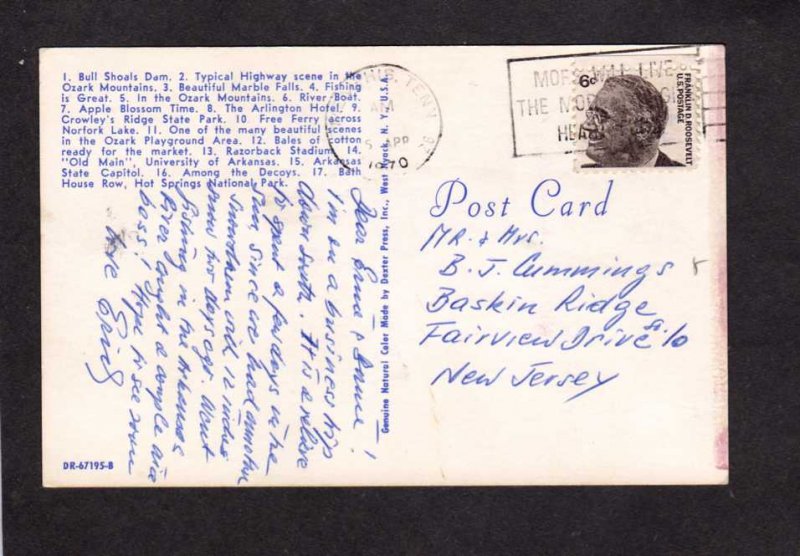 1. Bull Shoals Dam. 2. Typical Highway scene in the
Ozark Mountains. 3. Beautiful Marble Falls. 4. Fishing
is Great. 5. In the Ozark Mountains. 6. River Boat.
7. Apple Blossom Time. 8. The Arlington Hotel. 9.
Crowley's Ridge State Park. 10. Free Ferry across
Norfork Lake. 11. One of the many beautiful scenes
in the Ozark Playground Area. 12. Bales of cotton
ready for the market. 13. Razorback Stadium. 14.
"Old Main", University of Arkansas. 15. Arkansas
State Capitol. 16. Among the Decoys. 17. Bath
House Row, Hot Springs National Park.
Dear &
I'm on a business trip
down South. It is a
to spend a few days in the
sun, since we had another
snowstorm with 12 inches
snow two days ago. Went
fishing in the Arkansas
River caught a couple nice
bass! Hope to see soon
DR-67195-B
Genuine Natural Color Made by Dexter Press, Inc., West Nyack, N. Y., U.S.A.
TENN
AM
APR
1970
MORE WILL LIVE
THE MORE
HEA
6¢
FRANKLIN D. ROOSEVELT
U.S. POSTAGE
Post Card
MR. & Mrs.
B. J. Cummings
Baskin Ridge
Fairview Drive
New Jersey